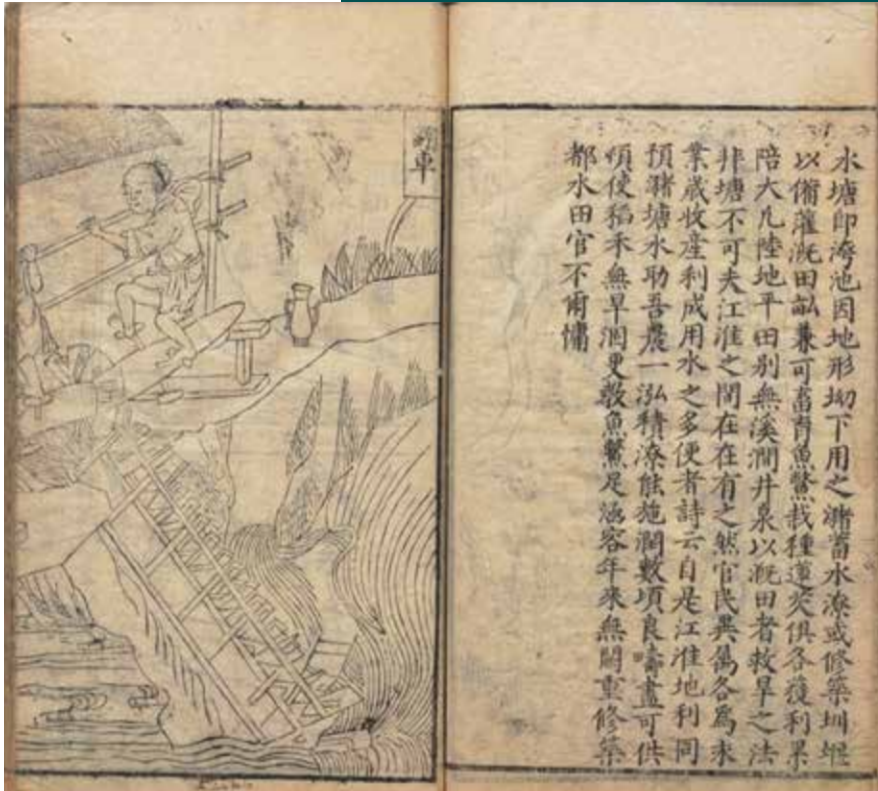 水塘即洿池因地形坳下用之瀦蓄水潦或修築圳堰
以備灌溉田畝兼可畜育魚鱉栽種蓮芡俱各獲利累
陪大凡陸地平田别無溪澗井泉以溉田者救旱之法
非塘不可夫江淮之間在在有之然官民異屬各為永
業歲收產利成用水之多便者詩云自是江淮地利同
預瀦塘水助吾農一泓積潦能施潤數頃良疇盡可供
頃使稻禾無旱涸更教魚鱉足涵容年來無閒重修築
都水田官不爾慵
翻車